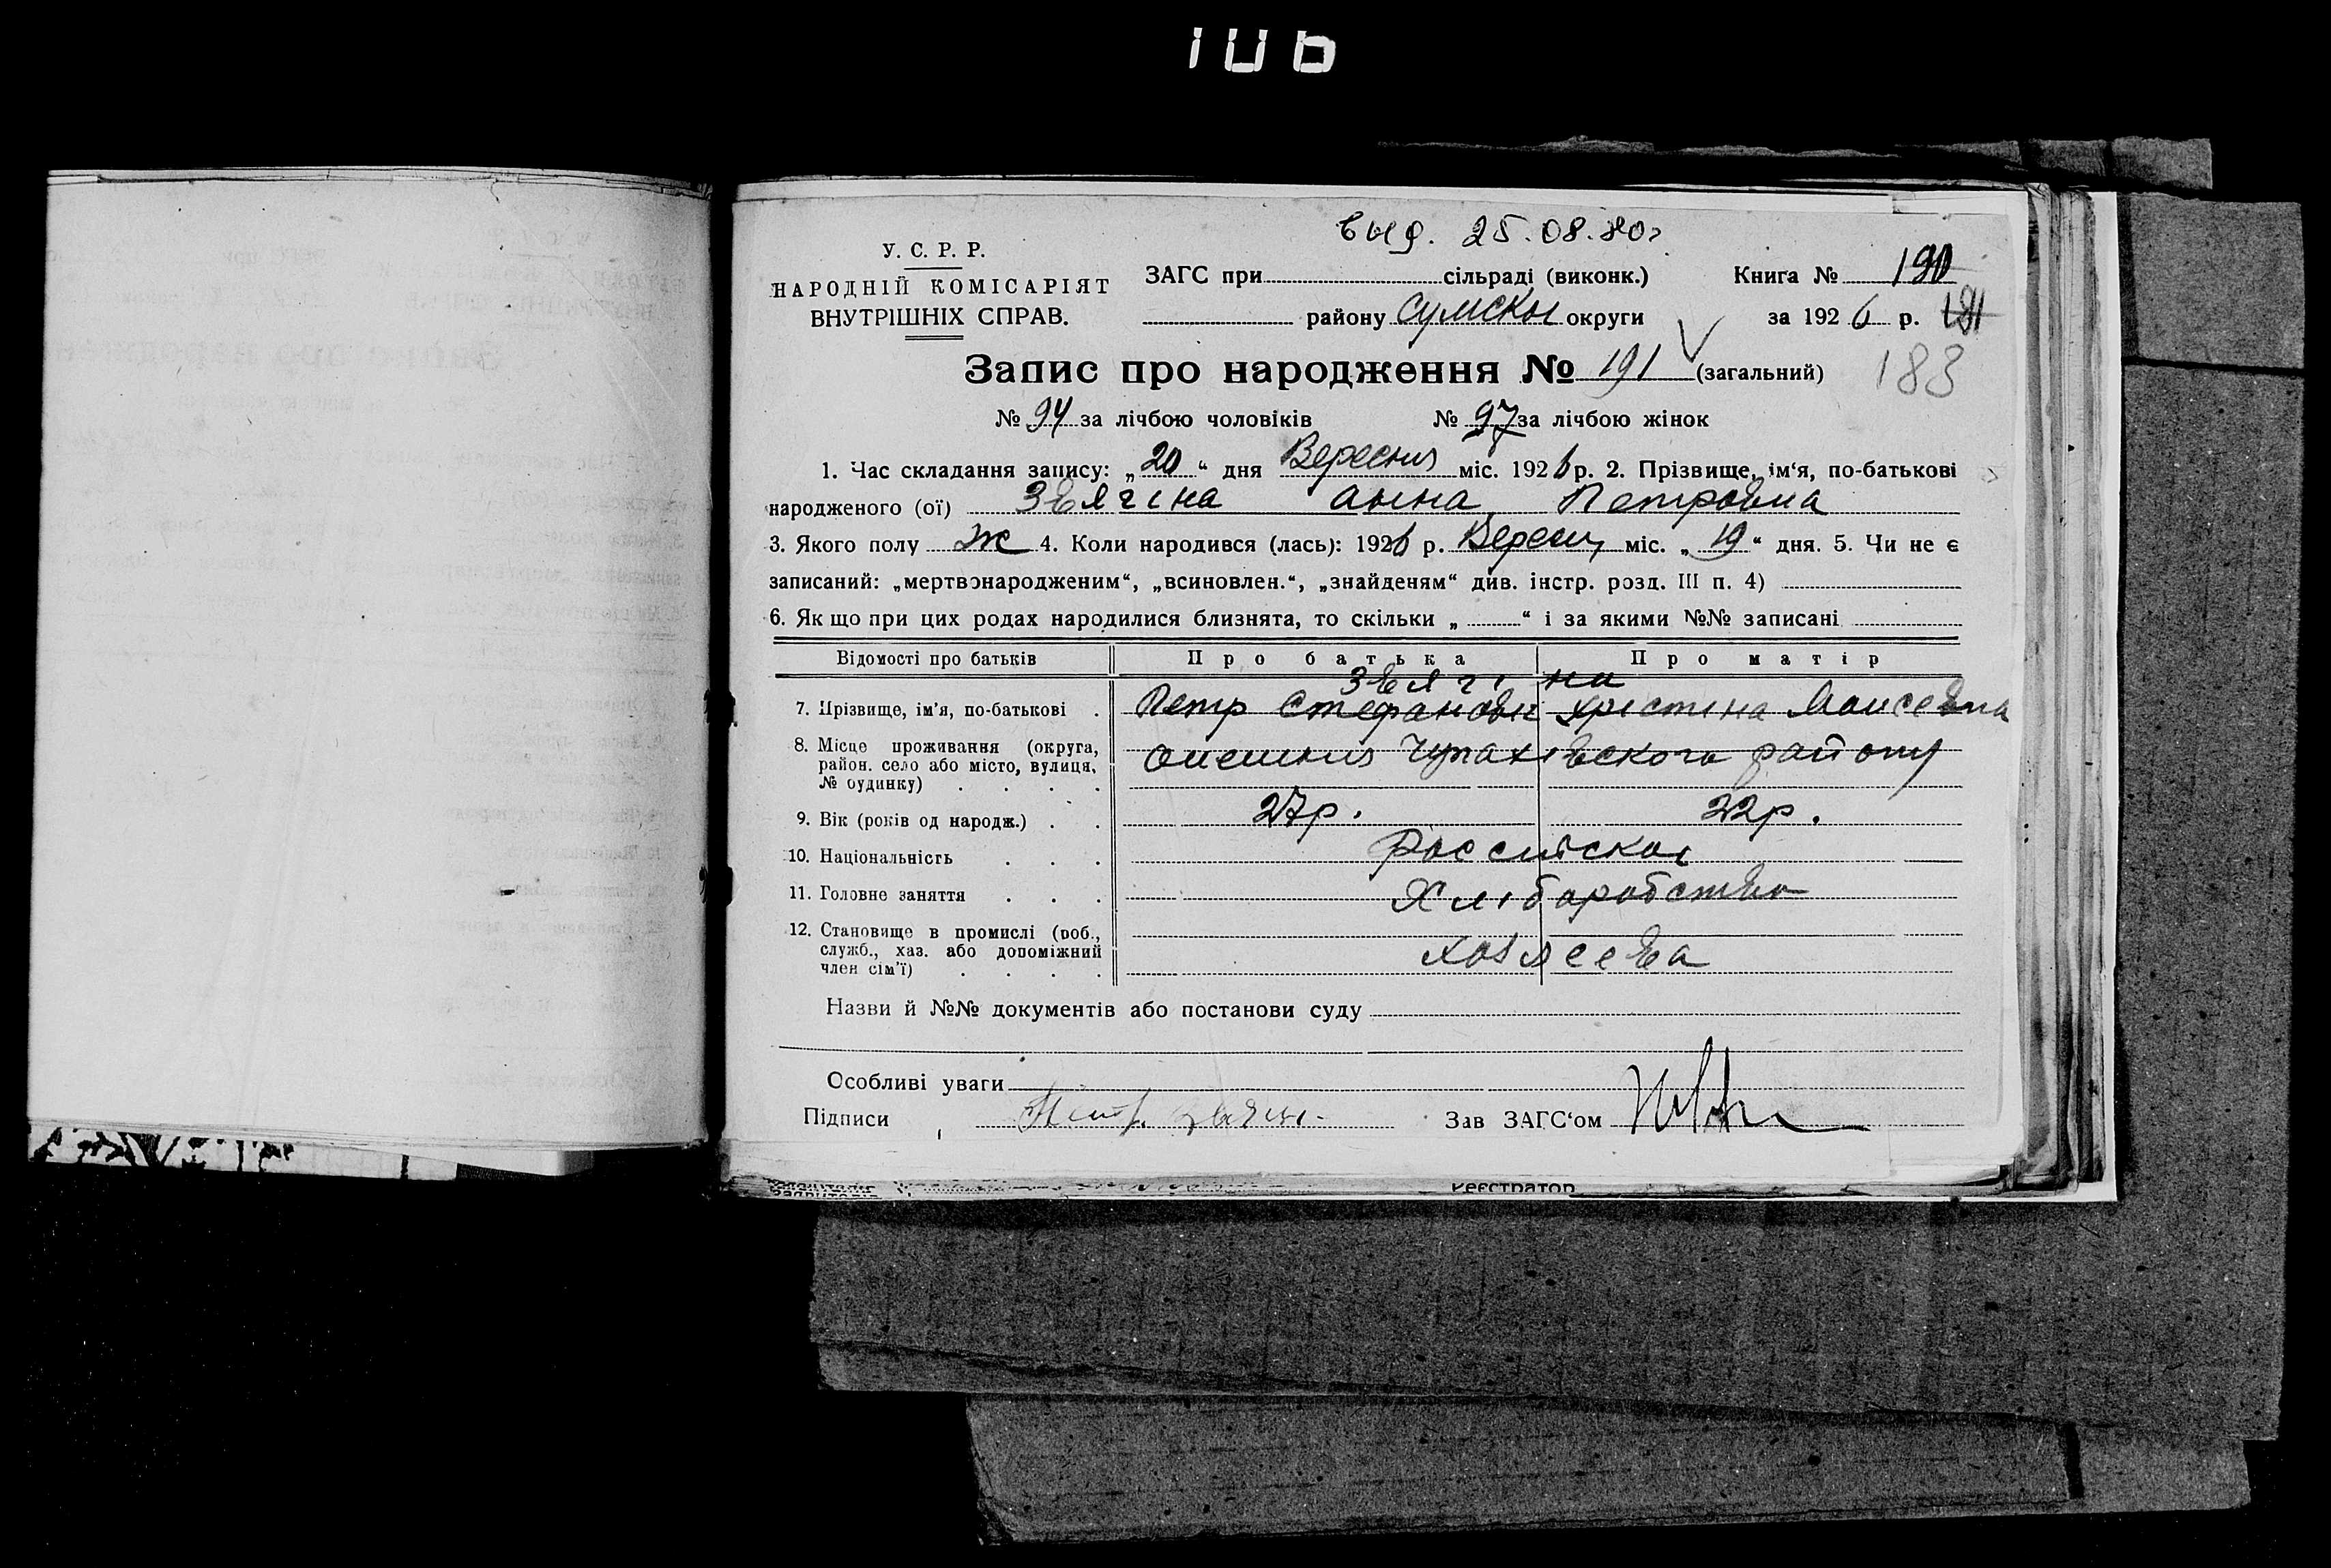 106
выд. 25.08.80г
У. С. Р. Р.
НАРОДНІЙ КОМІСАРІЯТ
ВНУТРІШНІХ СПРАВ.
ЗАГС при сільраді (виконк.)
району Сумскої округи
Книга № 190
за 1926 р. 191
183
Запис про народження № 191 (загальний)
№ 94 за лічбою чоловіків № 97 за лічбою жінок
1. Час складання запису: „20“ дня Вересня міс. 1926 р. 2. Прізвище, ім‘я, по-батькові
народженого (ої) Звягіна Анна Петровна
3. Якого полу Ж 4. Коли народився (лась): 1926 р. Вересня міс. „19“ дня. 5. Чи не є
записаний: „мертвонародженим“, „всиновлен.“, „знайденям“ див. інстр. розд. III п. 4)
6. Як що при цих родах народилися близнята, то скільки „ “ і за якими №№ записані
Відомості про батьків Про батька Про матір
Звягіни
7. Прізвище, ім’я, по-батькові Петр Стефанович Христина Моисеевна
8. Місце проживання (округа,
район. село або місто, вулиця,
№ будинку)
Олешня Чупахівского району
9. Вік (років од народж.) 27р. 22р.
10. Національність Российскої
11. Головне заняття Хліборобство
12. Становище в промислі (роб.,
служб., хаз. або допоміжний
член сім’ї)
Назви й №№ документів або постанови суду
Особливі уваги
Підписи Зав ЗАГС‘ом
Реєстратор